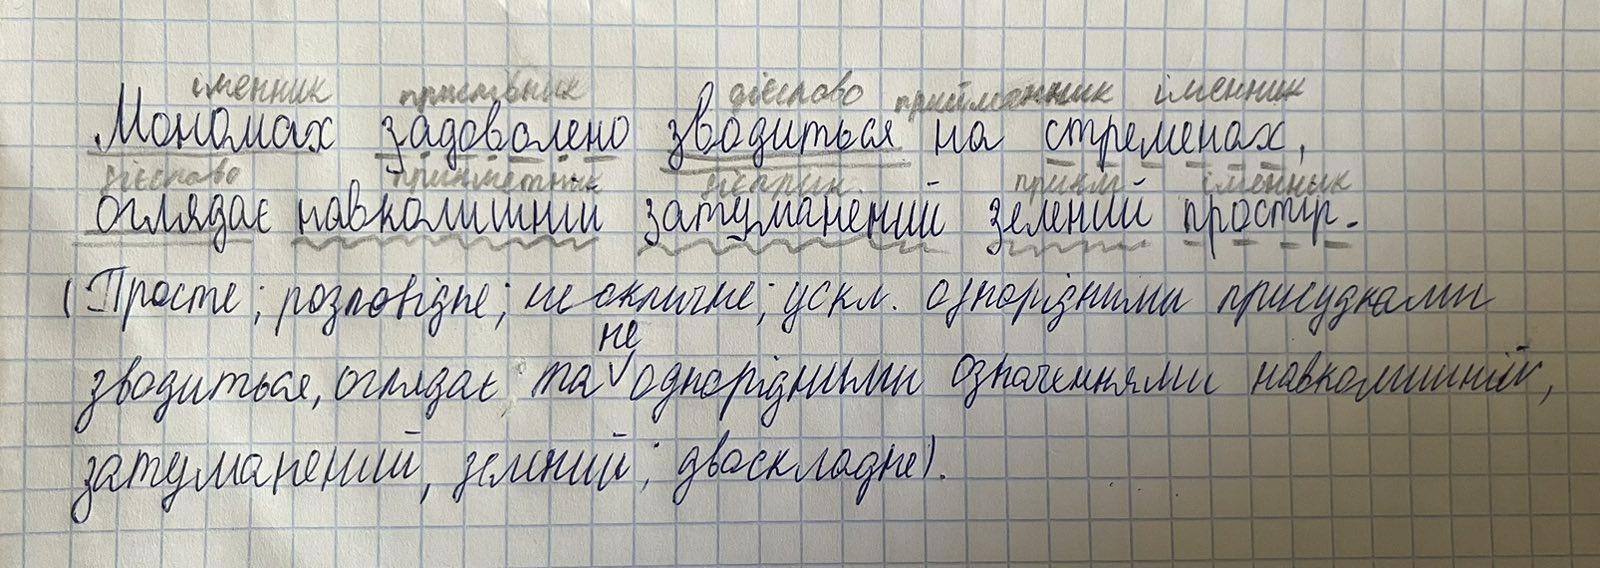 іменник прислівник дієслово прийменник іменник
Мономах задоволено зводиться на стременах,
дієслово прикметник дієприк. прикм іменник
оглядає навколишній затуманений зелений простір.
(Просте; розповідне; не оклични; ускл. однорідними присудками
не
зводиться, оглядає та однорідними означеннями навколишній,
затуманений, зелений; двоскладне).